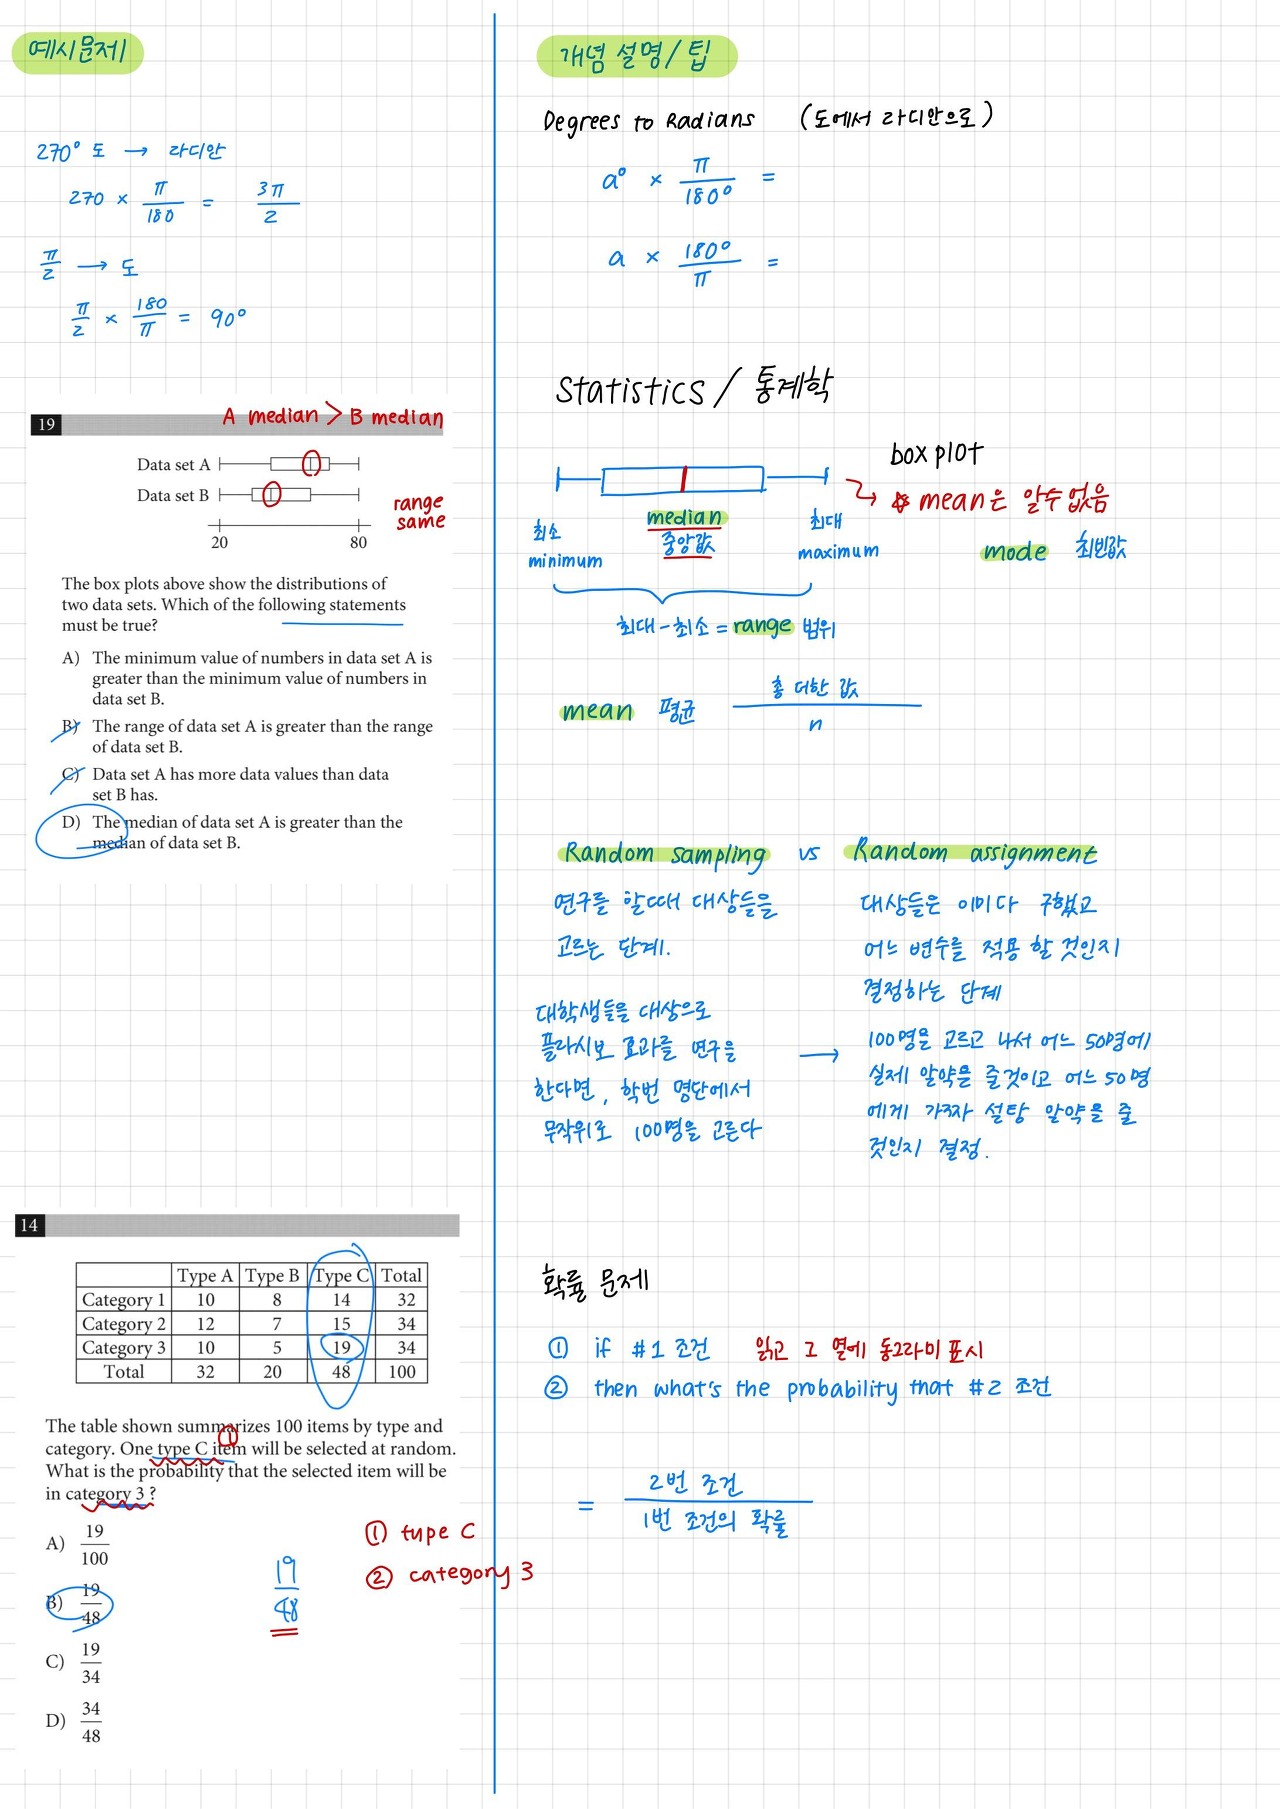 예시문제
270° 도 → 라디안
270 × π/180 = 3π/2
π/2 → 도
π/2 × 180/π = 90°
19
A median > B median
Data set A
Data set B
range
same
20 80
The box plots above show the distributions of
two data sets. Which of the following statements
must be true?
A) The minimum value of numbers in data set A is
greater than the minimum value of numbers in
data set B.
B) The range of data set A is greater than the range
of data set B.
C) Data set A has more data values than data
set B has.
D) The median of data set A is greater than the
median of data set B.
14
Type A Type B Type C Total
Category 1 10 8 14 32
Category 2 12 7 15 34
Category 3 10 5 19 34
Total 32 20 48 100
The table shown summarizes 100 items by type and
category. One type C item will be selected at random.
What is the probability that the selected item will be
in category 3 ?
①
A) 19/100
B) 19/48
C) 19/34
D) 34/48
19/48
① type C
② category 3
개념 설명/팁
Degrees to Radians (도에서 라디안으로)
a° × π/180° =
a × 180°/π =
Statistics / 통계학
box plot
☆ mean은 알수없음
최소
minimum
median
중앙값
최대
maximum
mode 최빈값
최대-최소 = range 범위
mean 평균 총 더한 값/n
Random sampling vs Random assignment
연구를 할때 대상들을
고르는 단계.
대학생들을 대상으로
플라시보 효과를 연구을
한다면, 학번 명단에서
무작위로 100명을 고른다
→
대상들은 이미 다 구했고
어느 변수를 적용 할 것인지
결정하는 단계
100명을 고르고 나서 어느 50명에
실제 알약을 줄것이고 어느 50명
에게 가짜 설탕 알약을 줄
것인지 결정.
확률 문제
① if #1 조건 읽고 그 열에 동그라미 표시
② then what's the probability that #2 조건
= 2번 조건/1번 조건의 확률